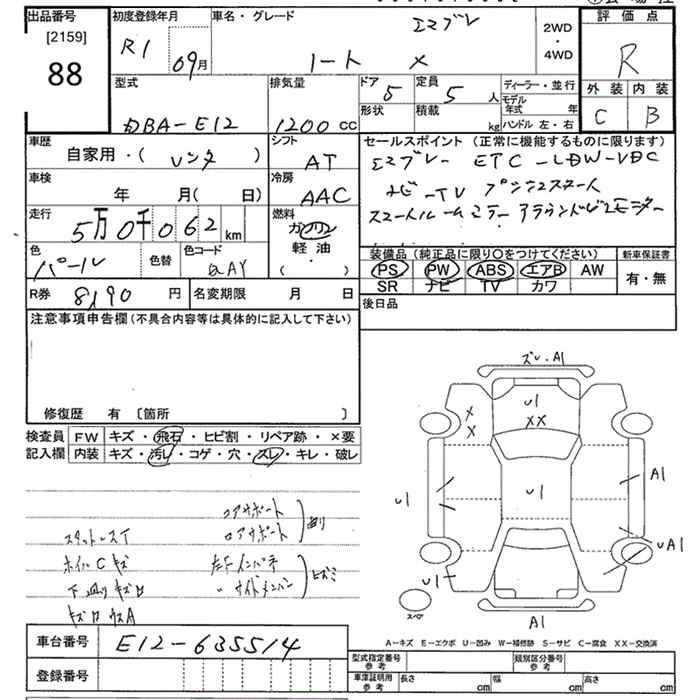 出品番号 初度登録年月 車名・グレード エマブレ 2WD・4WD 評価点
[2159] R1 09月 ノート X R
88
型式 排気量 ドア 5 定員 5人 ディーラー・並行 外装 内装
DBA-E12 1200cc 形状 積載 kg モデル年式 年 ハンドル 左・右 C B
車歴 自家用・( レンタ ) シフト AT セールスポイント (正常に機能するものに限ります)
エマブレー ETC-LDW-VDC
車検 年 月( 日) 冷房 AAC
ナビ-TV プッシュスタート
走行 5万0千062km 燃料 ガソリン・軽油・( )
スマートルームミラー アラウンドビューモニター
色 パール 色替 色コード QAY
装備品 (純正品に限り○をつけてください) 新車保証書
PS PW ABS エアB AW 有・無
SR ナビ TV カワ
R券 8190円 名変期限 月 日 後日品
注意事項申告欄 (不具合内容等は具体的に記入して下さい)
修復歴 有 [箇所 ]
検査員 FW キズ・飛石・ヒビ割・リペア跡・×要
記入欄 内装 キズ・汚レ・コゲ・穴・スレ・キレ・破レ
ズレ・A1
U1
XX
X
X
A1
U1
U1
UA1
U1
スペア
A1
コアサポート
ロアサポート
曲り
スタットレスT
ホイルCキズ 左下インパネ
下廻りキズロ 〃 サイドメンバー
ヒズミ
キズロ ウスA
A-キズ E-エクボ U-凹み W-補修跡 S-サビ C-腐食 XX-交換済
車台番号 E12-635514
登録番号
型式指定番号 参考 類別区分番号 参考
車庫証明用 参考 長さ cm 幅 cm 高さ cm